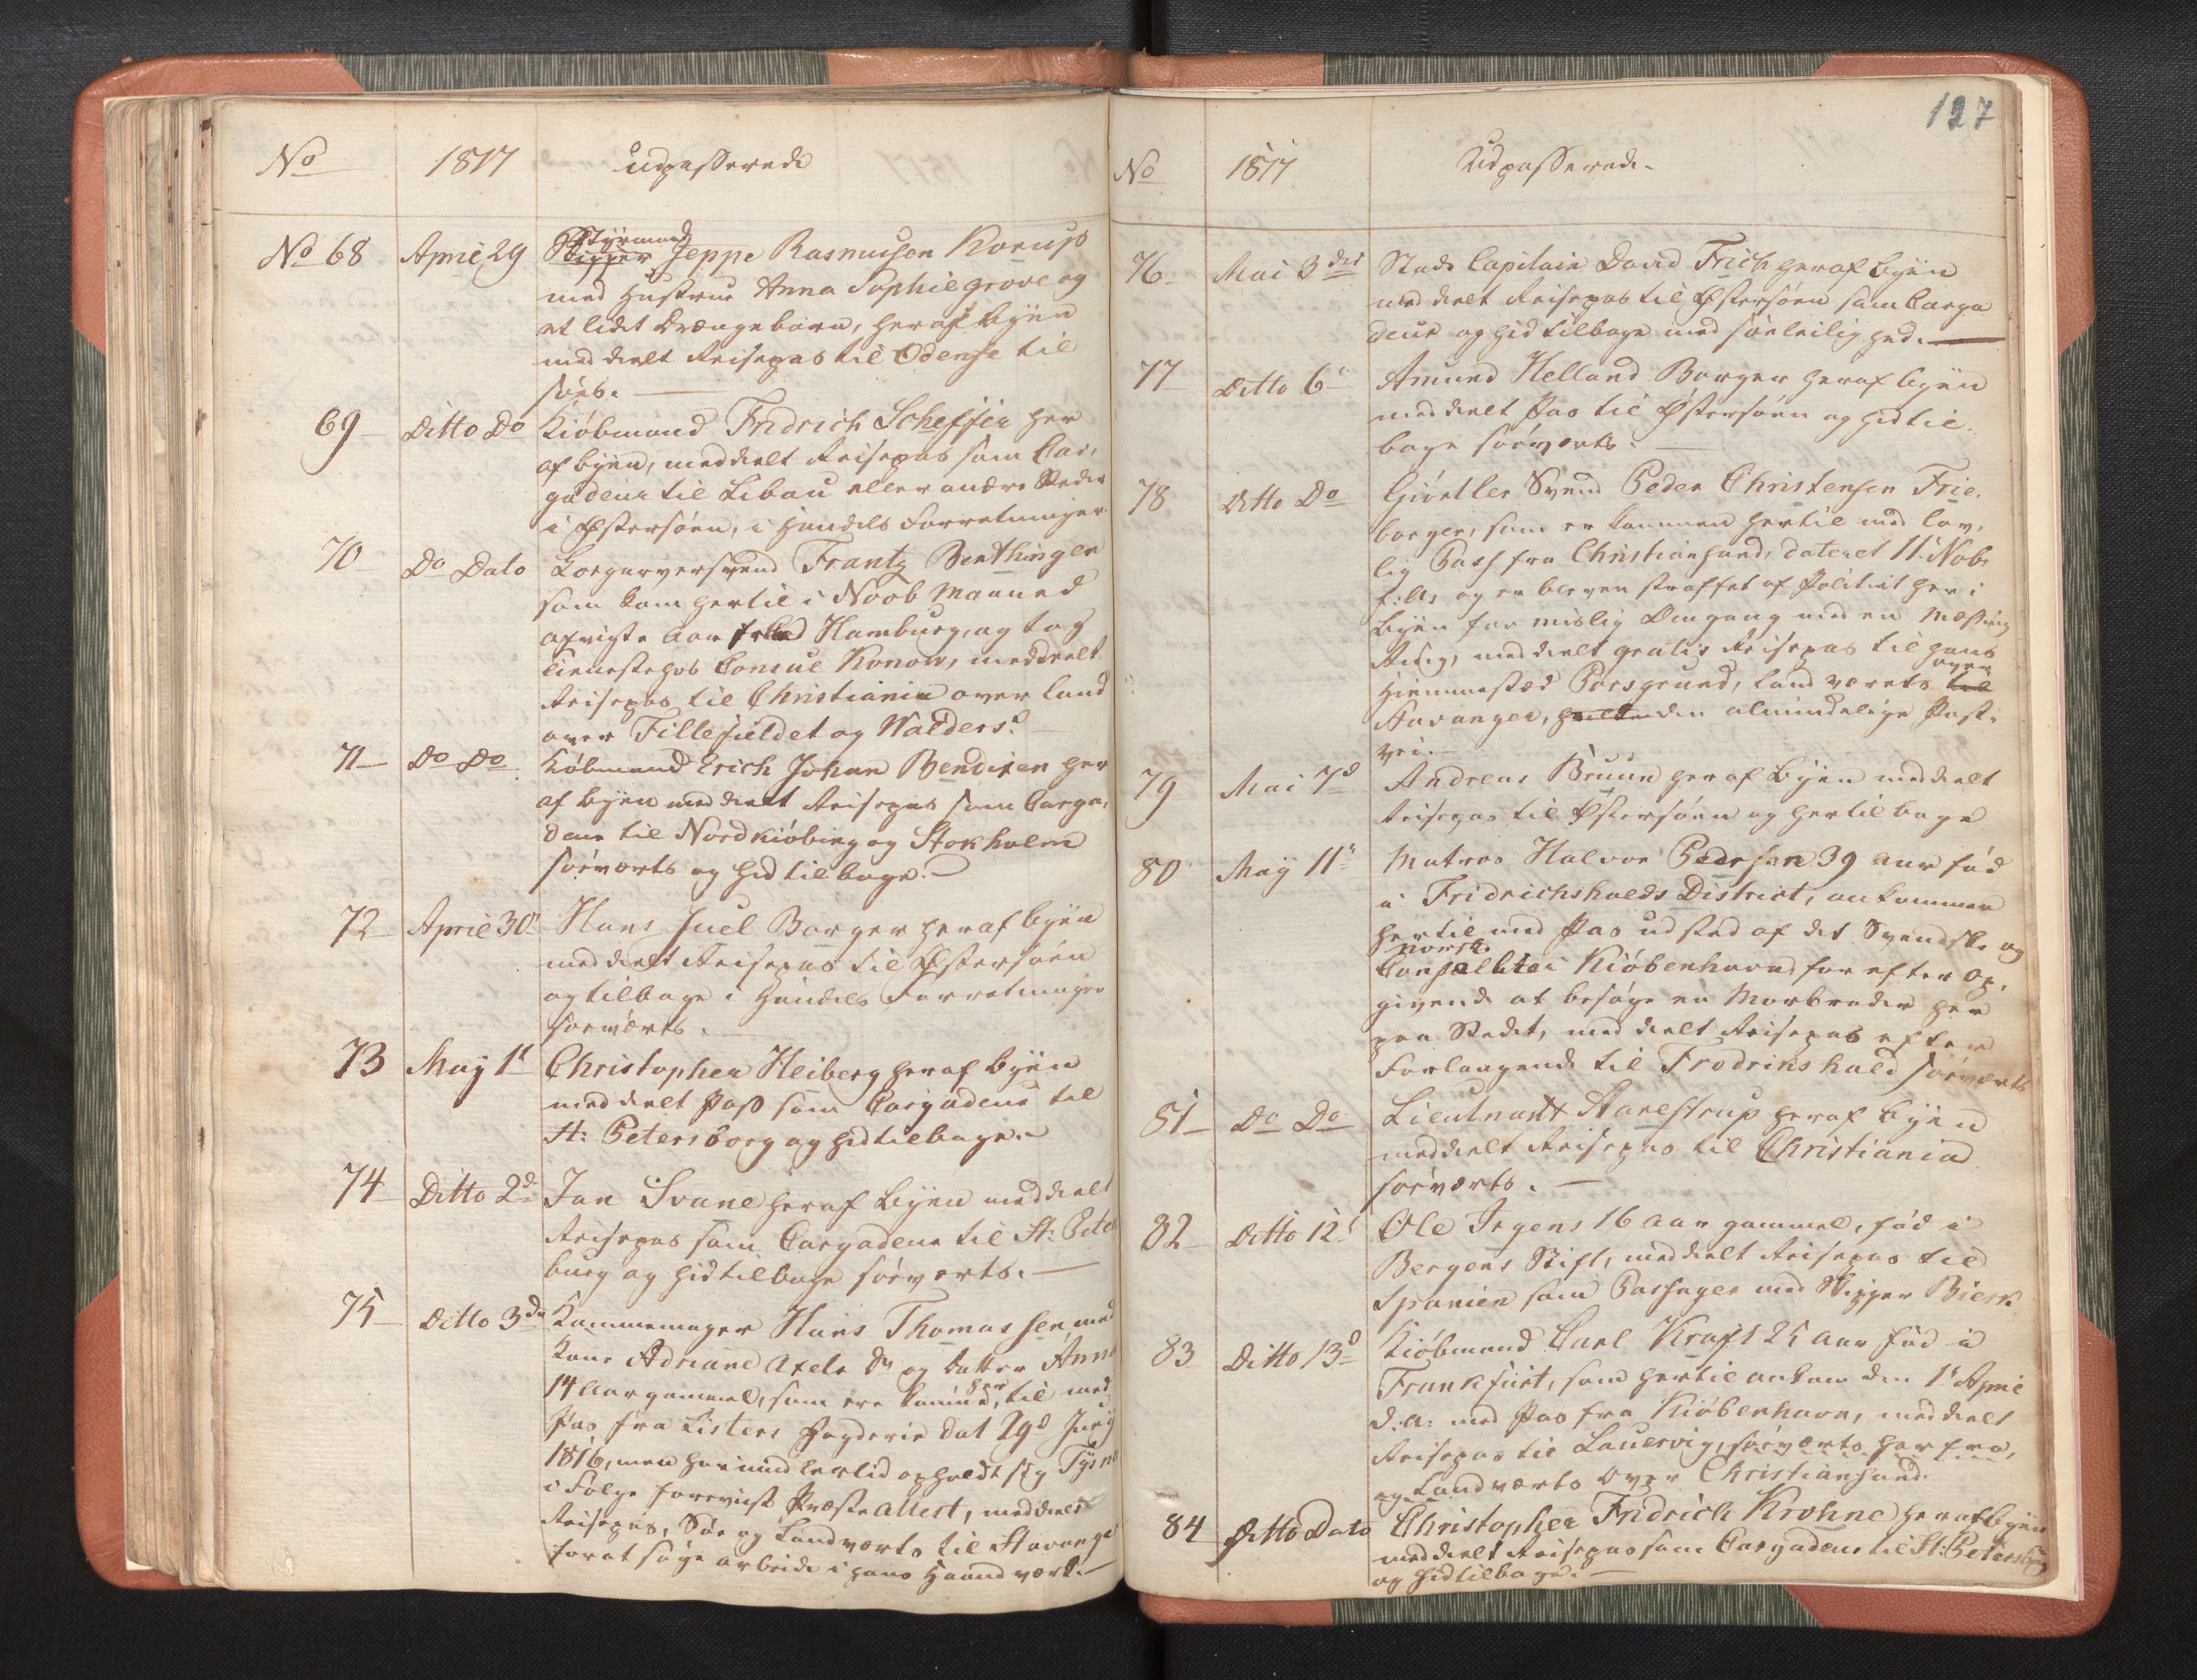 No 1817 udpasserede
No 68 April 29 Skipper Styrmand Jeppe Rasmusen Korup
med Hustrue Anna Sophie Grove og
et lidet Drængebarn, heraf Byen
meddeelt Reisepas til Odense til
söes.
69 Ditto Do Kiöbmand Fridrich Scheffer her
af byen, meddeelt Reisepas som Car,
gadeur til Libau eller andre Steder
i Østersöen, i Handels Forretninger
70 Do Dato Frantz Benthinger
som kom hertil i Novb Maaned
afvigte Aar Hamburg, og tog
Tieneste hos Consul Konow, meddeelt
Reisepas til Christiania over Land
over Fillefieldet og Walders.
71 Do Do Köbmand Erich Johan Bendixen her
af byen meddeelt Reisepas som Carga,
deur til Nordkiöbing og Stokholm
söeværts og hid tilbage.
72 April 30 Hans Juel Borger heraf byen
meddeelt Reisepas til Østersöen
og tilbage i Handels Forretninger
söeværts.
73 May 1t Christopher Heiberg heraf byen
meddeelt Pass som Cargadeur til
St: Petersborg og hid tilbage.
74 Ditto 2d Jan Svane heraf byen meddeelt
Reisepas som Cargadeur til St: Peter
burg og hid tilbage söeværts.
75 Ditto 3de Kammemager Hans Thomassen med
Kone Adriane Axels Dr og datter Anna
14 Aar gammel, som ere kommed her til med
Pas fra Listers Fogderie dat 29d Juny
1816, men har imidlertid opholdt sig Tysnes
i Fölge foreviist Præste Attest, meddeelt
Reisepas, Söe og Landværts til Stavanger
for at söge arbeide i hans Haandværk.
127
No 1817 Udpasserede
76 Mai 3die Stads Capitain David Frich heraf byen
meddeelt Reisepas til Østersöen som Carga
deur og hid tilbage med söeleilighed.
77 Ditto 6te Amund Helland Borger heraf byen
meddeelt Pas til Østersöen og hid til
bage söeværts.
78 Ditto Do Giörtler Svend Peder Christensen Frie,
borger, som er kommen hertil med lov,
lig Pass fra Christiansund, dateret 11 Nob
f: A: og er bleven straffet af Politiet her i
byen for mislig Omgang med en Messing
Ring, meddeelt gratis Reisepas til hans
Hiemmestæd Porsgrund, landværts til over
Stavanger, den almindelige Post,
vei.
79 Mai 7d Andreas Bruun heraf byen meddeelt
Reisepas til Østersöen og her tilbage
80 May 11te Matros Halvor Pedersen 39 Aar föd
i Fridrichshalds District, ankommen
hertil med Pas udsted af det Svendske og
norske Consulat i Kiöbenhavn, for efter Op,
givende at besöge en Morbroder her
paa Stedet, meddeelt Reisepas efter
Forlangende til Frodrikshald söeværts
81 Do Do Lieutnant Aarestrup heraf byen
meddeelt Reisepas til Christiania
söeværts.
82 Ditto 12t Ole Irgens 16 Aar gammel, föd i
Bergens Stift, meddeelt Reisepas til
Spanien som Passager med Skipper Bierk.
83 Ditto 13d Kiöbmand Carl Kraft 25 Aar föd i
Frankfurt, som hertil ankom den 1t April
d: A: med Pas fra Kiöbenhavn, meddeelt
Reisepas til Lauervig, söeværts herfra,
og Landværts over Christiansand.
84 Ditto Dato Christopher Fridrich Krohne heraf byen
meddeelt Reisepas som Cargadeur til St: Petersburg
og hid tilbage.